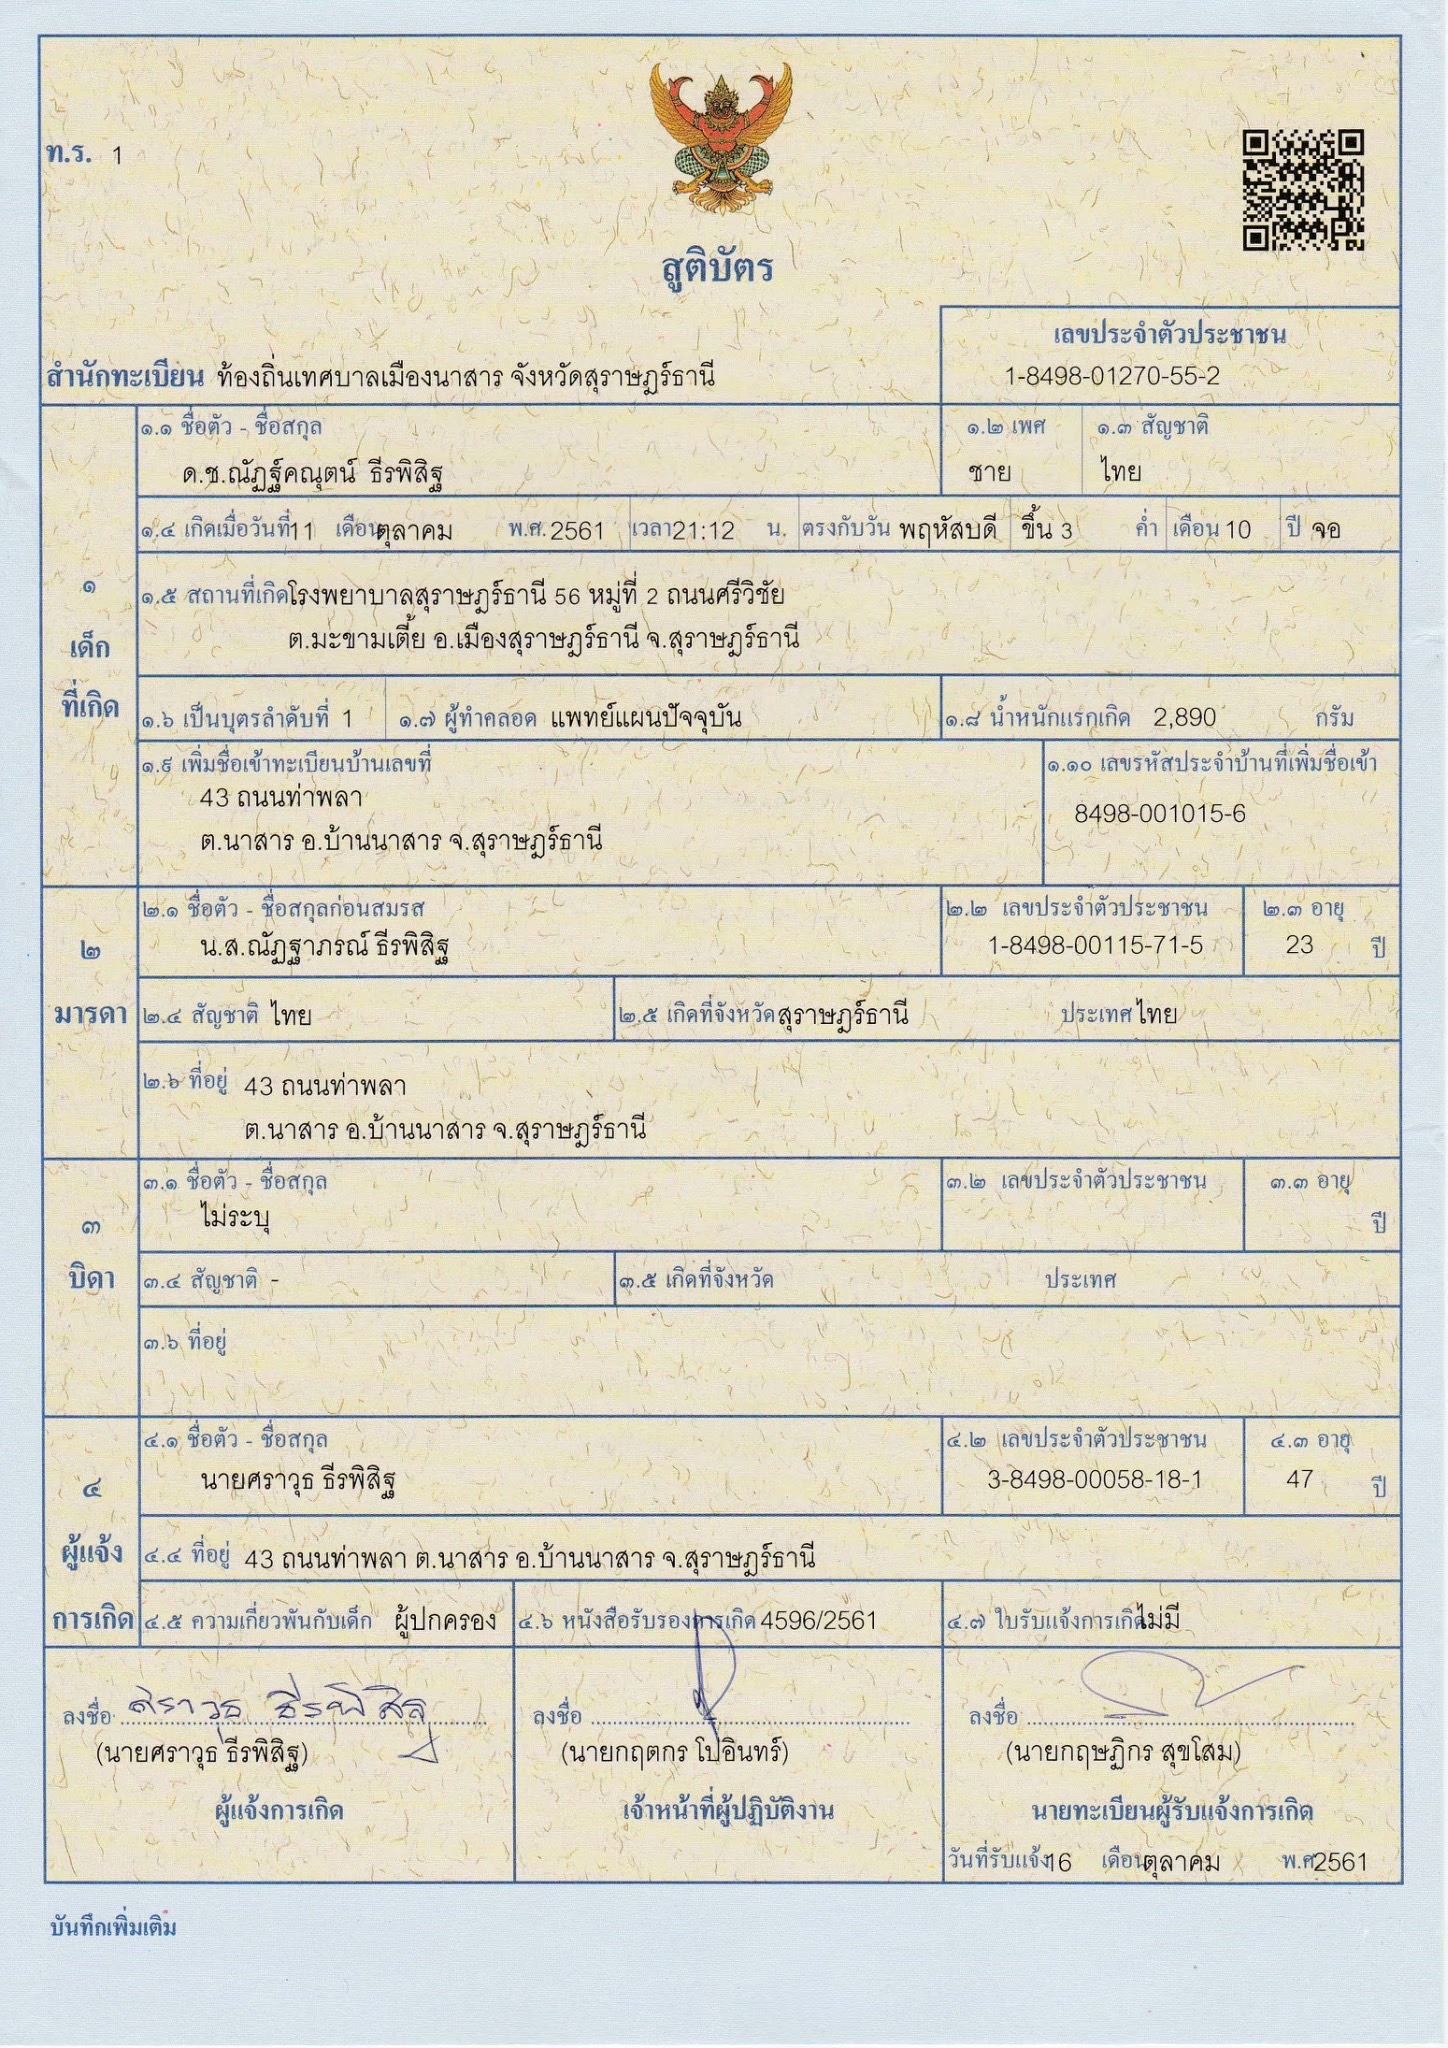 ท.ร. 1
สูติบัตร
เลขประจำตัวประชาชน
สำนักทะเบียน ท้องถิ่นเทศบาลเมืองนาสาร จังหวัดสุราษฎร์ธานี
1-8498-01270-55-2
๑.๑ ชื่อตัว - ชื่อสกุล ๑.๒ เพศ ๑.๓ สัญชาติ
ด.ช.ณัฏฐ์คณุตน์ ธีรพิสิฐ ชาย ไทย
๑.๔ เกิดเมื่อวันที่ 11 เดือน ตุลาคม พ.ศ. 2561 เวลา 21:12 น. ตรงกับวัน พฤหัสบดี ขึ้น 3 ค่ำ เดือน 10 ปี จอ
๑
เด็ก
ที่เกิด
๑.๕ สถานที่เกิด โรงพยาบาลสุราษฎร์ธานี 56 หมู่ที่ 2 ถนนศรีวิชัย
ต.มะขามเตี้ย อ.เมืองสุราษฎร์ธานี จ.สุราษฎร์ธานี
๑.๖ เป็นบุตรลำดับที่ 1 ๑.๗ ผู้ทำคลอด แพทย์แผนปัจจุบัน ๑.๘ น้ำหนักแรกเกิด 2,890 กรัม
๑.๙ เพิ่มชื่อเข้าทะเบียนบ้านเลขที่ ๑.๑๐ เลขรหัสประจำบ้านที่เพิ่มชื่อเข้า
43 ถนนท่าพลา
8498-001015-6
ต.นาสาร อ.บ้านนาสาร จ.สุราษฎร์ธานี
๒
มารดา
๒.๑ ชื่อตัว - ชื่อสกุลก่อนสมรส ๒.๒ เลขประจำตัวประชาชน ๒.๓ อายุ
น.ส.ณัฏฐาภรณ์ ธีรพิสิฐ 1-8498-00115-71-5 23 ปี
๒.๔ สัญชาติ ไทย ๒.๕ เกิดที่จังหวัด สุราษฎร์ธานี ประเทศ ไทย
๒.๖ ที่อยู่ 43 ถนนท่าพลา
ต.นาสาร อ.บ้านนาสาร จ.สุราษฎร์ธานี
๓
บิดา
๓.๑ ชื่อตัว - ชื่อสกุล ๓.๒ เลขประจำตัวประชาชน ๓.๓ อายุ
ไม่ระบุ ปี
๓.๔ สัญชาติ - ๓.๕ เกิดที่จังหวัด ประเทศ
๓.๖ ที่อยู่
๔
ผู้แจ้ง
การเกิด
๔.๑ ชื่อตัว - ชื่อสกุล ๔.๒ เลขประจำตัวประชาชน ๔.๓ อายุ
นายศราวุธ ธีรพิสิฐ 3-8498-00058-18-1 47 ปี
๔.๔ ที่อยู่ 43 ถนนท่าพลา ต.นาสาร อ.บ้านนาสาร จ.สุราษฎร์ธานี
๔.๕ ความเกี่ยวพันกับเด็ก ผู้ปกครอง ๔.๖ หนังสือรับรองการเกิด 4596/2561 ๔.๗ ใบรับแจ้งการเกิด ไม่มี
ลงชื่อ ศราวุธ ธีรพิสิฐ ลงชื่อ ลงชื่อ
(นายศราวุธ ธีรพิสิฐ) (นายกฤตกร โปอินทร์) (นายกฤษฏิกร สุขโสม)
ผู้แจ้งการเกิด เจ้าหน้าที่ผู้ปฏิบัติงาน นายทะเบียนผู้รับแจ้งการเกิด
วันที่รับแจ้ง 16 เดือน ตุลาคม พ.ศ. 2561
บันทึกเพิ่มเติม